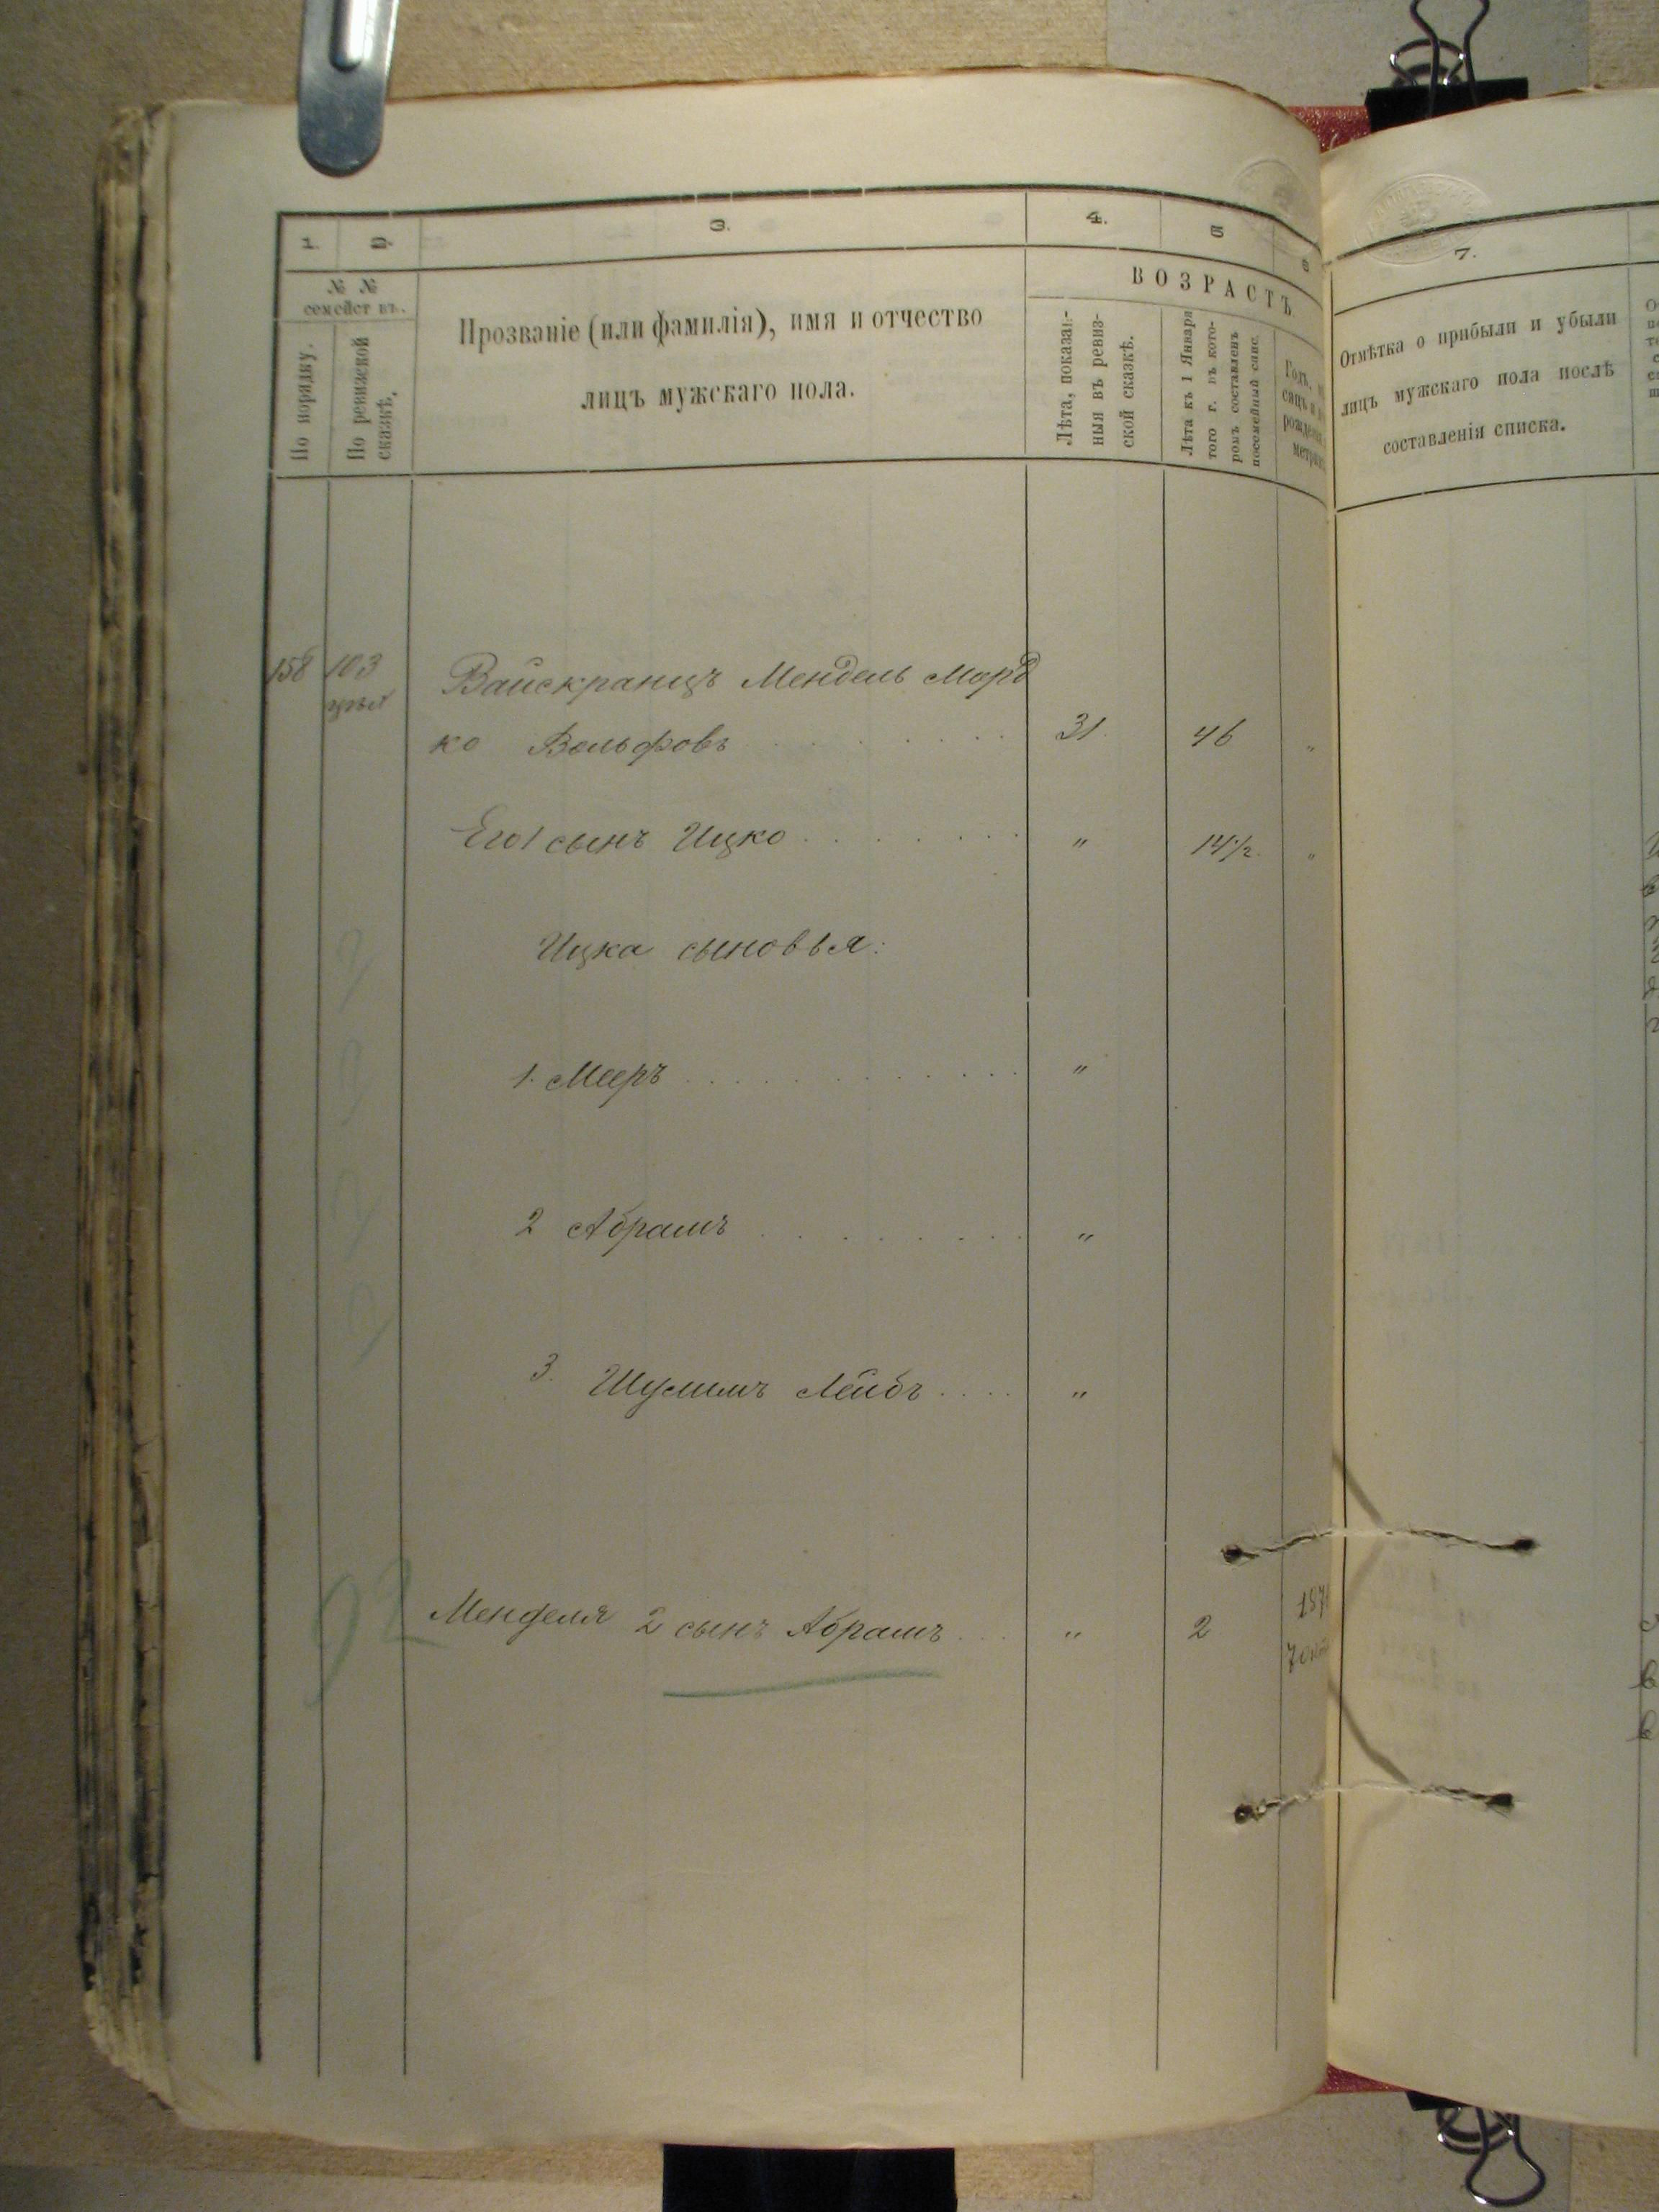 1.
2.
3.
4.
5
6
7.
№ №
семействъ.
По порядку.
По ревизской
сказкѣ.
Прозваніе (или фамилія), имя и отчество
лицъ мужскаго пола.
ВОЗРАСТЪ
Лѣта, показан-
ныя въ ревиз-
ской сказкѣ.
Лѣта къ 1 Января
того г. въ кото-
ромъ составленъ
посемейный спис.
Годъ,
рожденія
Отмѣтка о прибыли и убыли
лицъ мужскаго пола послѣ
составленія списка.
158 103 Вайскранцъ МендельМорд
ко Вольфовъ . . . . . . . . 31. 46 "
Его 1 сынъ Ицко . . . . . . . " 14½. "
Ицка сыновья:
1. Мееръ . . . . . . . . . . "
2 Абрамъ . . . . . . . . "
3. Шулимъ Лейбъ . . . . "
92 Менделя 2 сынъ Абрамъ . . . " 2 187
7